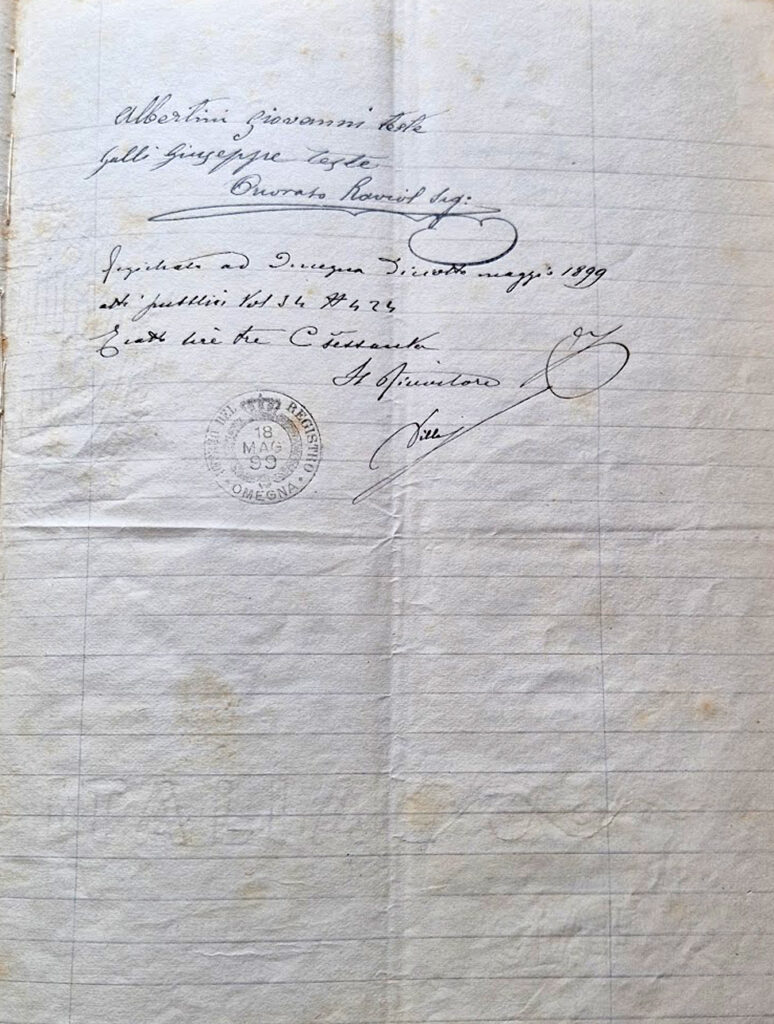 Albertini Giovanni teste
Galli Giuseppe teste
Onorato Raviol Seg:
Registrato ad Omegna Diciotto maggio 1899
atti pubblici Vol 34 N 424
Esatte lire tre C sessanta
Il Ricevitore
UFFICIO DEL REGISTRO
18
MAG
99
OMEGNA